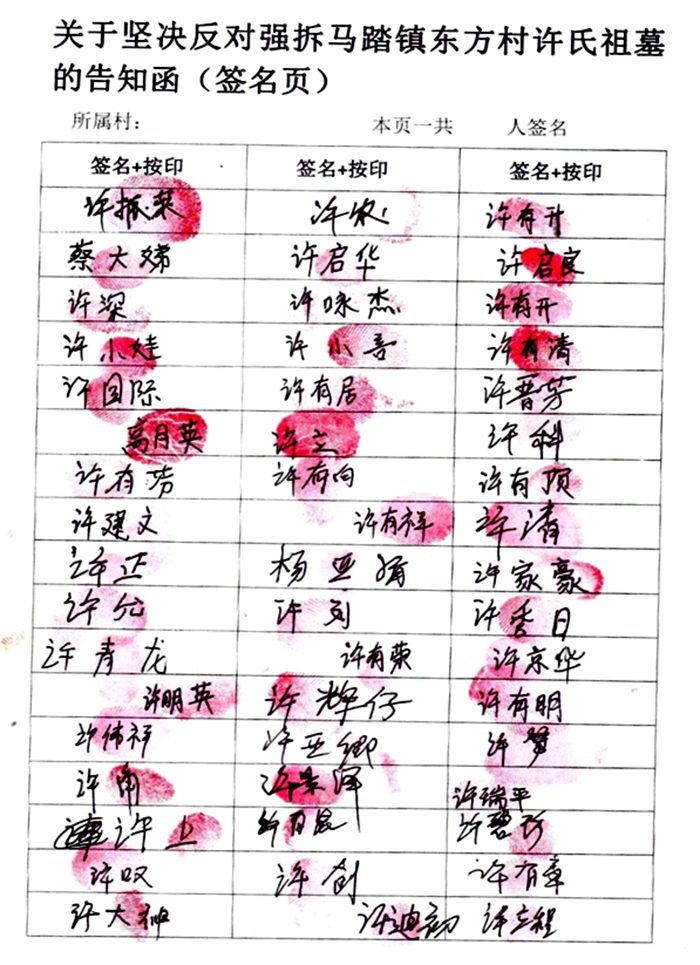 关于坚决反对强拆马踏镇东方村许氏祖墓
的告知函（签名页）
所属村： 本页一共 人签名
签名+按印 签名+按印 签名+按印
许振荣 许农 许有升
蔡大嫦 许启华 许启良
许深 许咏杰 许有开
许小娃 许小吾 许有清
许国际 许有居 许晋芳
高月英 许立 许科
许有芳 许有向 许有顶
许建文 许有祥 许清
许正 杨亚娟 许家豪
许允 许刘 许季日
许青龙 许有荣 许京华
许明英 许辉仔 许有明
许伟祥 许亚卿 许梦
许角 许景泽 许瑞平
许上 许日昆 许碧珍
许叹 许创 许有章
许大神 许迪初 许立程